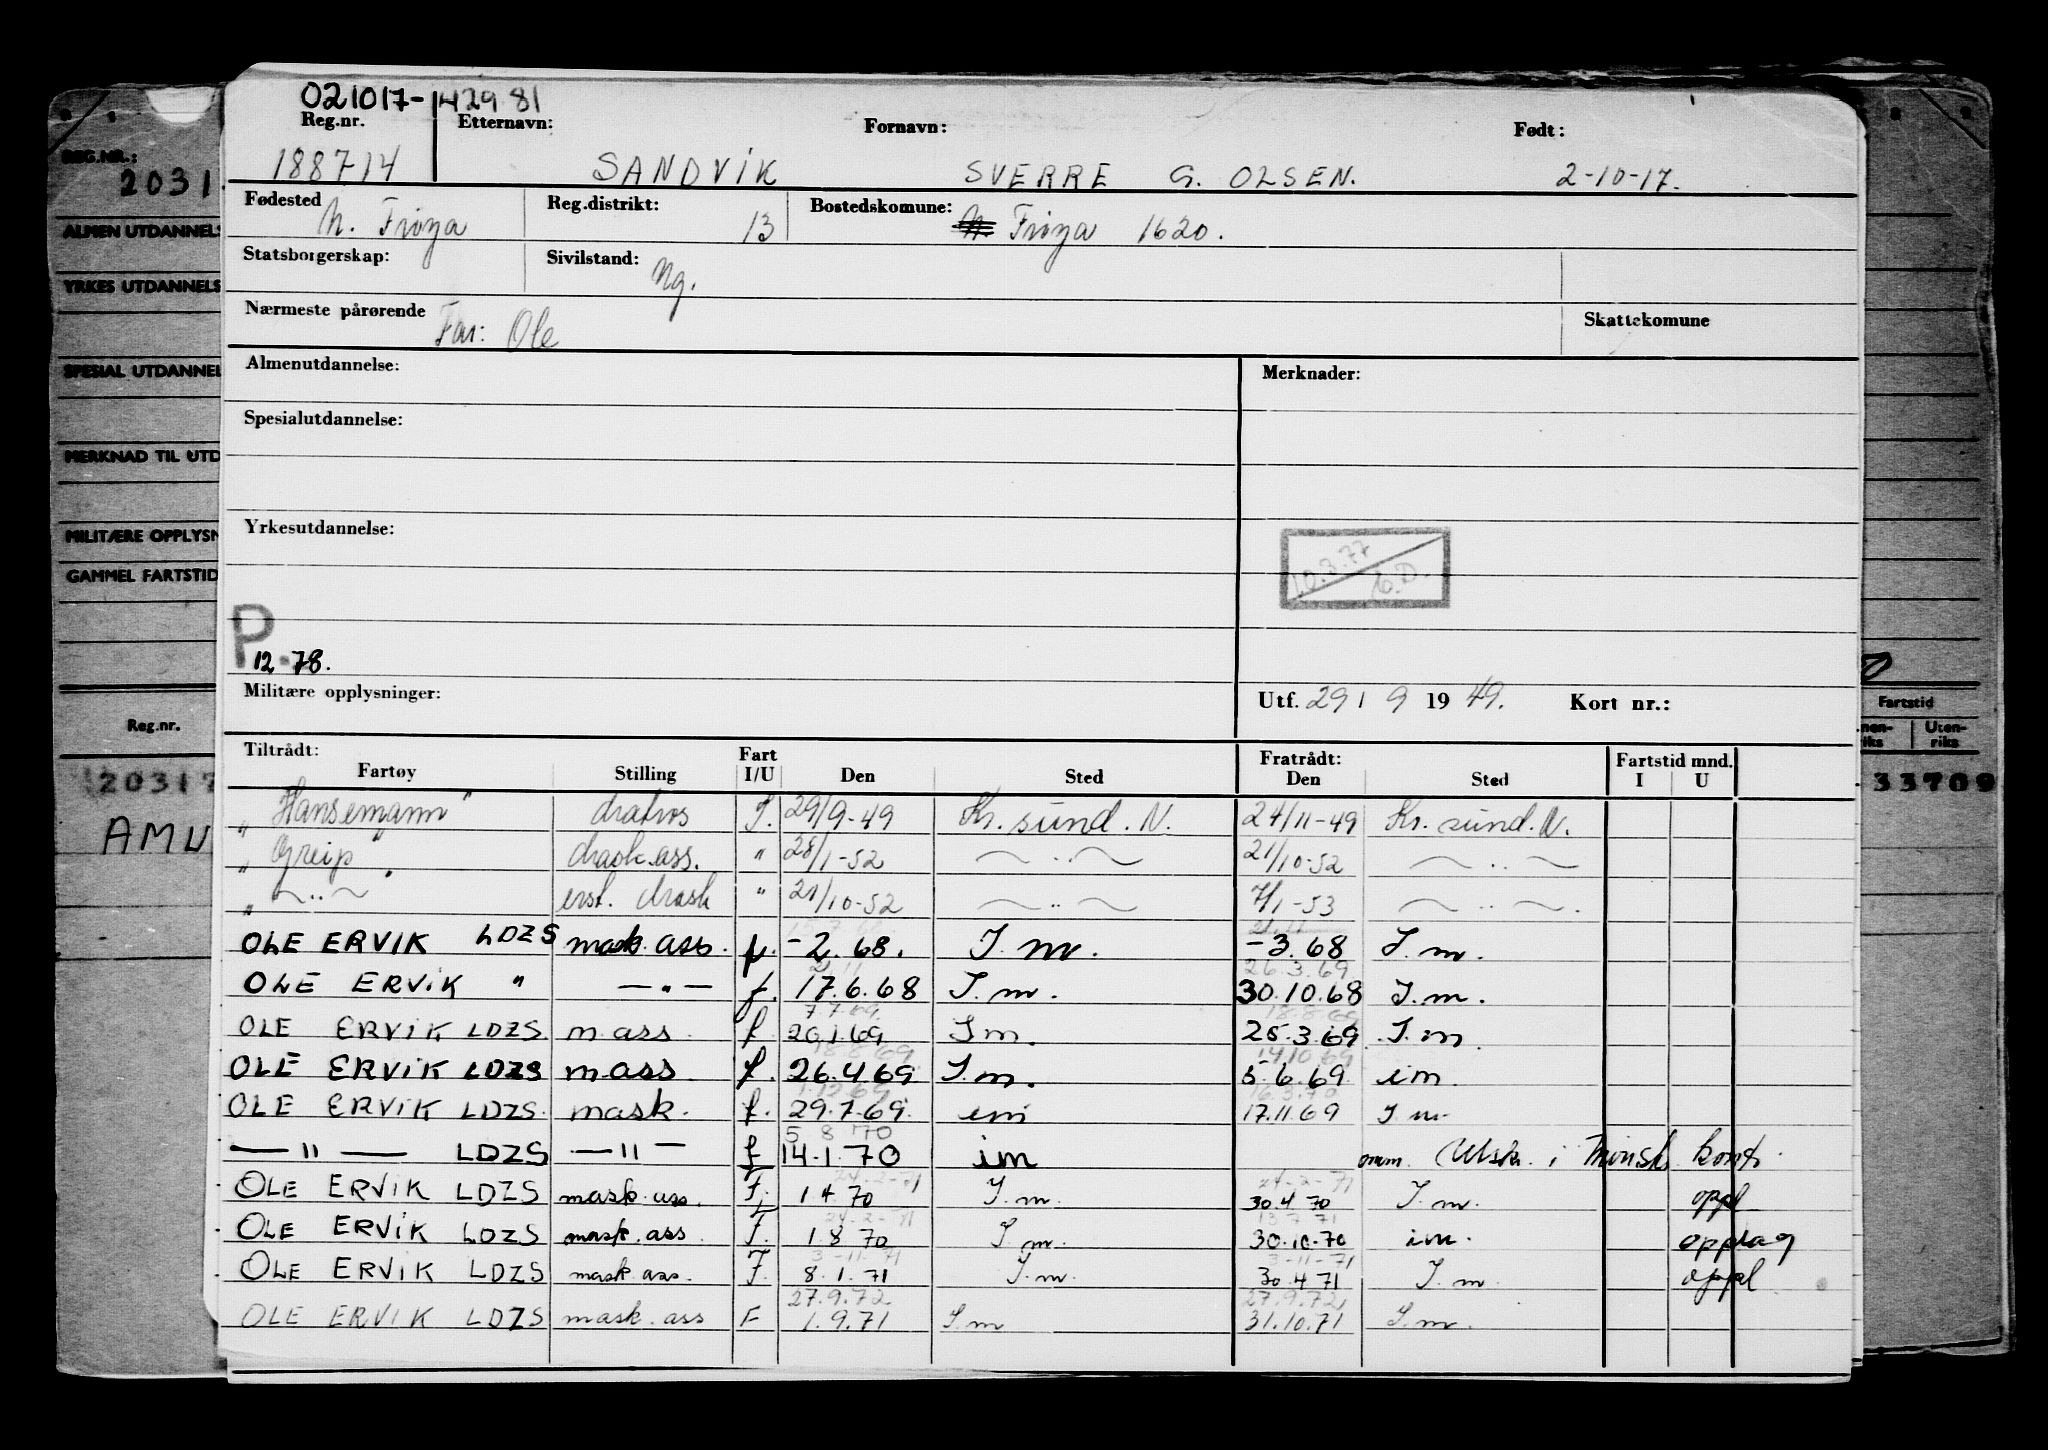 021017-142981
Reg.nr. Etternavn: Fornavn: Født:
188714 SANDVIK SVERRE G. OLSEN. 2-10-17.
Fødested Reg.distrikt: Bostedskomune:
N. Frøya 13 N. Frøya 1620.
Statsborgerskap: Sivilstand: Ug.
Nærmeste pårørende Skattekomune
Far: Ole
Almenutdannelse: Merknader:
Spesialutdannelse:
Yrkesutdannelse:
10.3.77
P
12-78.
Militære opplysninger: Utf. 29 / 9 19 49. Kort nr.:
Tiltrådt: Fart Fratrådt: Fartstid mnd.
Fartøy Stilling I/U Den Sted Den Sted I U
"Hansemann" matros 29/9-49 Kr.sund.N. 24/11-49 Kr.sund.N.
"Greip" mask.ass. " 28/1-52 ~ .. ~ 21/10-52 ~ .. ~
" ~ .. ~ " erst. mask " 21/10-52 ~ .. ~ 7/1-53 ~ .. ~ .
OLE ERVIK LDZS mask.ass. f. -2.68. I.m. -3.68 I.m.
26.3.69
OLE ERVIK " — " — f. 17.6.68 I.m. 30.10.68 I.m.
7.7.69. 18.8.69
OLE ERVIK LDZS m.ass. f. 20.1.69 I.m. 25.3.69 I.m.
18.8.69 14.10.69
OLE ERVIK LDZS m.ass. f. 26.4.69 I.m. 5.6.69. i.m.
1.12.69 16.3.70
OLE ERVIK LDZS. mask. f. 29.7.69. i.m 17.11.69 I.m.
5 8 70
— " — LDZS — " — f 14.1.70 im Utskr. i kont.
24-2-71 24-2-71
OLE ERVIK LDZS mask.ass. F. 1 4 70 I.m. 30.4 70 I.m. oppl
24-2-71 13 7 71
OLE ERVIK LDZS mask.ass. F. 1 8 70 I.m. 30.10.70 i.m. opplag
3-11-71 3-11-71
OLE ERVIK LDZS mask.ass. F. 8.1.71 I.m. 30 4 71 I.m. oppl
27.9.72. 27.9.72
OLE ERVIK LDZS mask.ass F 1.9.71 I.m 31.10.71 I.m.
REG.NR.:
2031
ALMEN UTDANNELS
YRKES UTDANNELS
SPESIAL UTDANNEL
MERKNAD TIL UTD
MILITÆRE OPPLYSN
GAMMEL FARTSTID
Reg.nr.
20317
AMU
Fartstid
nen-riks Uten-riks
33709